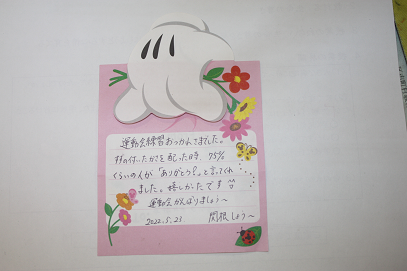 運動会練習おつかれさまでした。
を配った時、75%
くらいの人が「ありがとう」と言ってくれ
ました。嬉しかったです
運動会がんばりましょう〜
2022.5.23 関根しょう〜